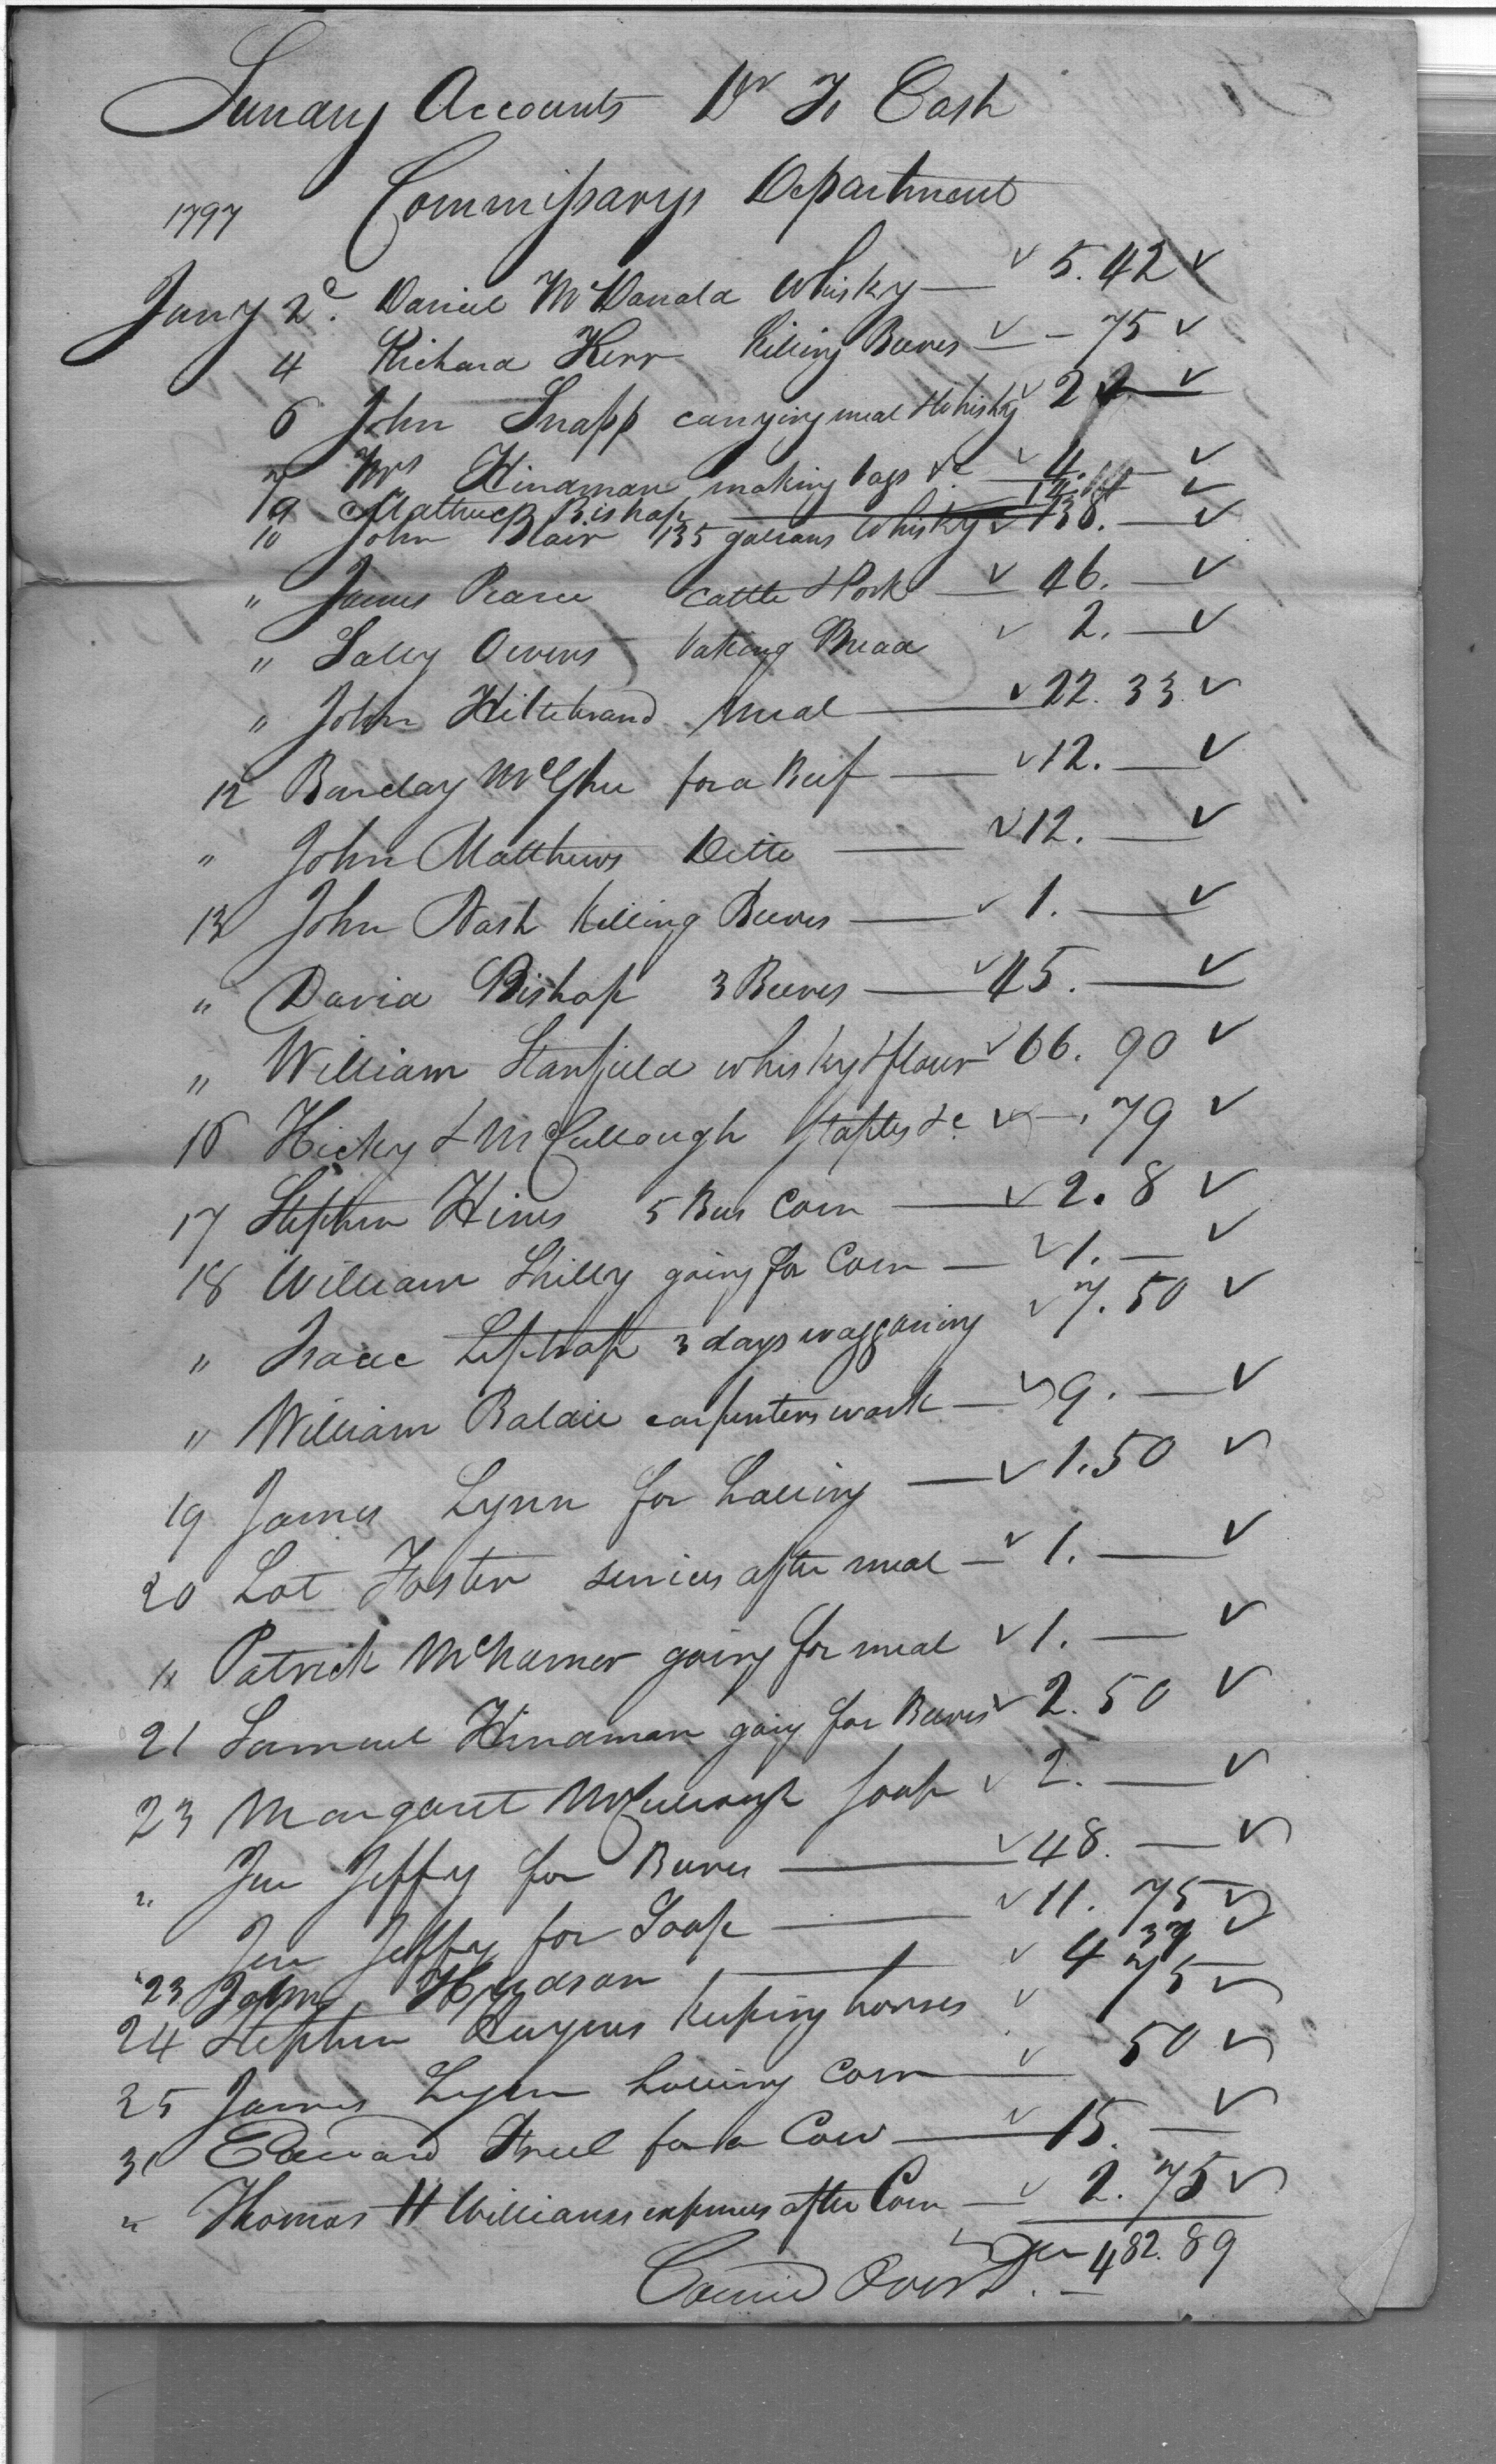 Sundry Accounts Dr To Cash
Commissarys Department
1797
Jany 2d. Daniel McDonald Whisky — 5.42
4 Richard Kerr Killing Beeves — 75
6 John Snapp carrying meal & Whisky 2
7 Mrs Hindman making bags &c — 4. —
9 Matthew Bishop —
10 John Blair 135 gallons Whisky 138. —
" James Pearce Cattle & Pork — 46. —
" Sally Owens baking Bread 2. —
" John Hiltebrand Meal — 22.33
12 Barclay McGhee for a Beef — 12. —
" John Matthews Ditto — 12. —
13 John Nash Killing Beeves — 1. —
" David Bishop 3 Beeves — 45. —
" William Stanfield whisky & flour 66.90
16 Hicky & McCullough Staples &c — .79
17 Stephen Hines 5 Bus Corn — 2.8
18 William Skilly going for Corn — 1. —
" Isaac 3 days waggoning 7.50
" William Baldie carpenters work — 9. —
19 James Lynn for halling — 1.50
20 Lot Foster services after meal — 1. —
" Patrick McNamer going for meal 1. —
21 Samuel Hindman going for Beeves 2.50
23 Margaret McCullough soap 2. —
" Jeffy for Beeves — 48. —
Jeffy for Soap — 11.75
23 John Hudson — 4 37
24 Stephen keeping horses 75
25 James Lynn halling Corn — 50
31 Edward Freel for a Cow — 15. —
" Thomas H Williams expenses after Corn — 2.75
482.89
Carried Over